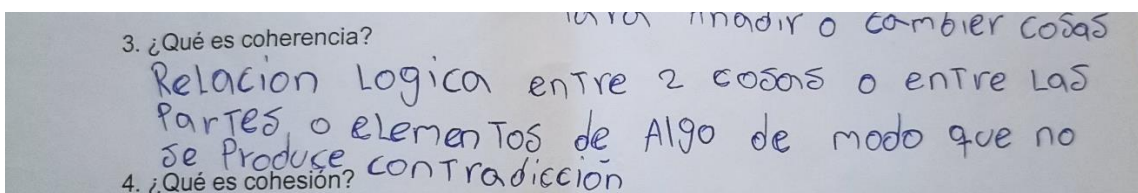 o cambier cosas
3. ¿Qué es coherencia?
Relacion Logica entre 2 cosas o entre Las
Partes, o elementos de Algo de modo que no
se Produce contradicción
4. ¿Qué es cohesión?